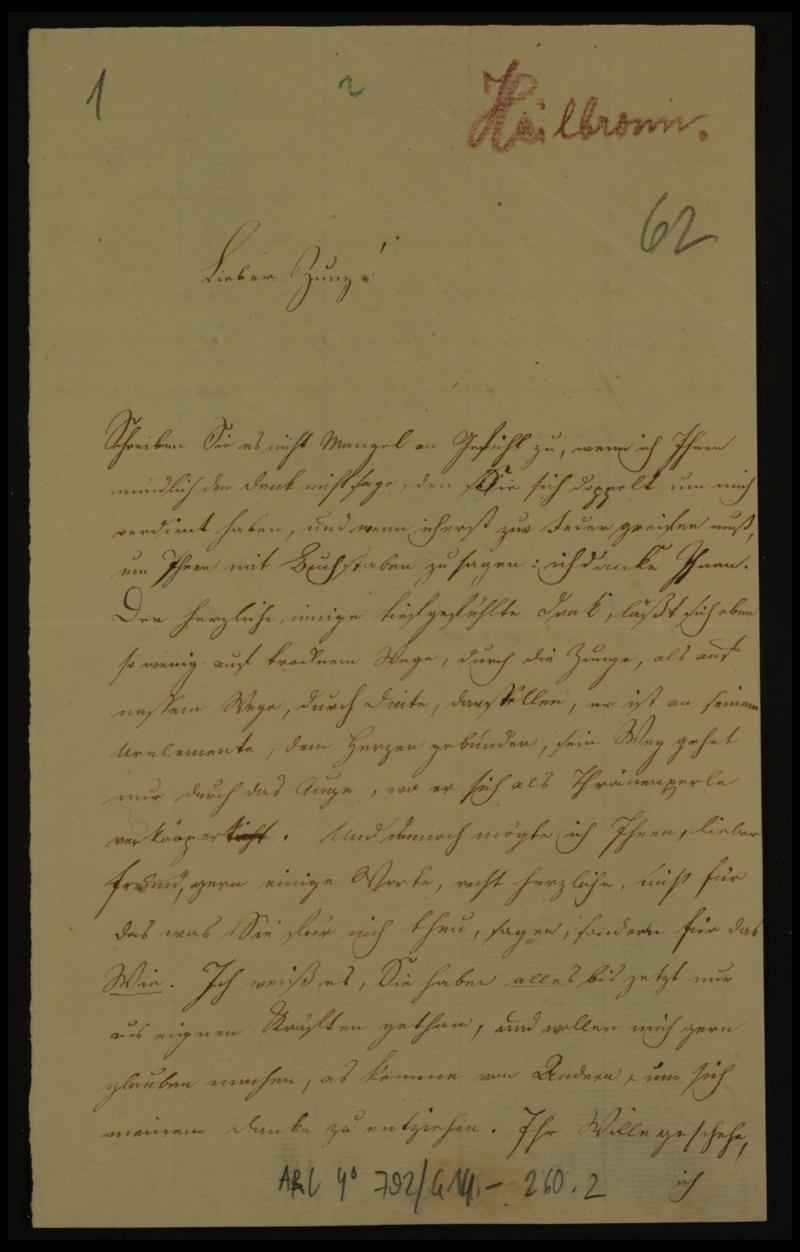 1
2
Heilbronn.
62
Lieber Zunz!
Schreiben Sie es nicht Mangel an Gefühl zu, wenn ich Ihnen
mündlich den Dank nicht sage, den Sie sich doppelt um mich
verdient haben, und wenn ich erst zur Feder greifen muß,
um Ihnen mit Buchstaben zu sagen: ich danke Ihnen.
Der herzliche, innige tiefgefühlte Dank, läßt sich eben
so wenig auf trocknem Wege, durch die Zunge, als auf
nassem Wege, durch Dinte, darstellen, er ist an seinem
Urelemente, dem Herzen gebunden, sein Weg gehet
nur durch das Auge, wo er sich als Thränenperle
verkörpert. Und dennoch mögte ich Ihnen, lieber
Freund, gern einige Worte, recht herzliche, nicht für
das was Sie für mich thun, sagen, sondern für das
Wie. Ich weiß es, Sie haben alles bis jetzt nur
aus eignen Kräften gethan, und wollen mich gern
glauben machen, es komme von Andern, um sich
meinem Danke zu entziehen. Ihr Wille geschehe,
ich
ARC 4° 792/G14 - 260.2